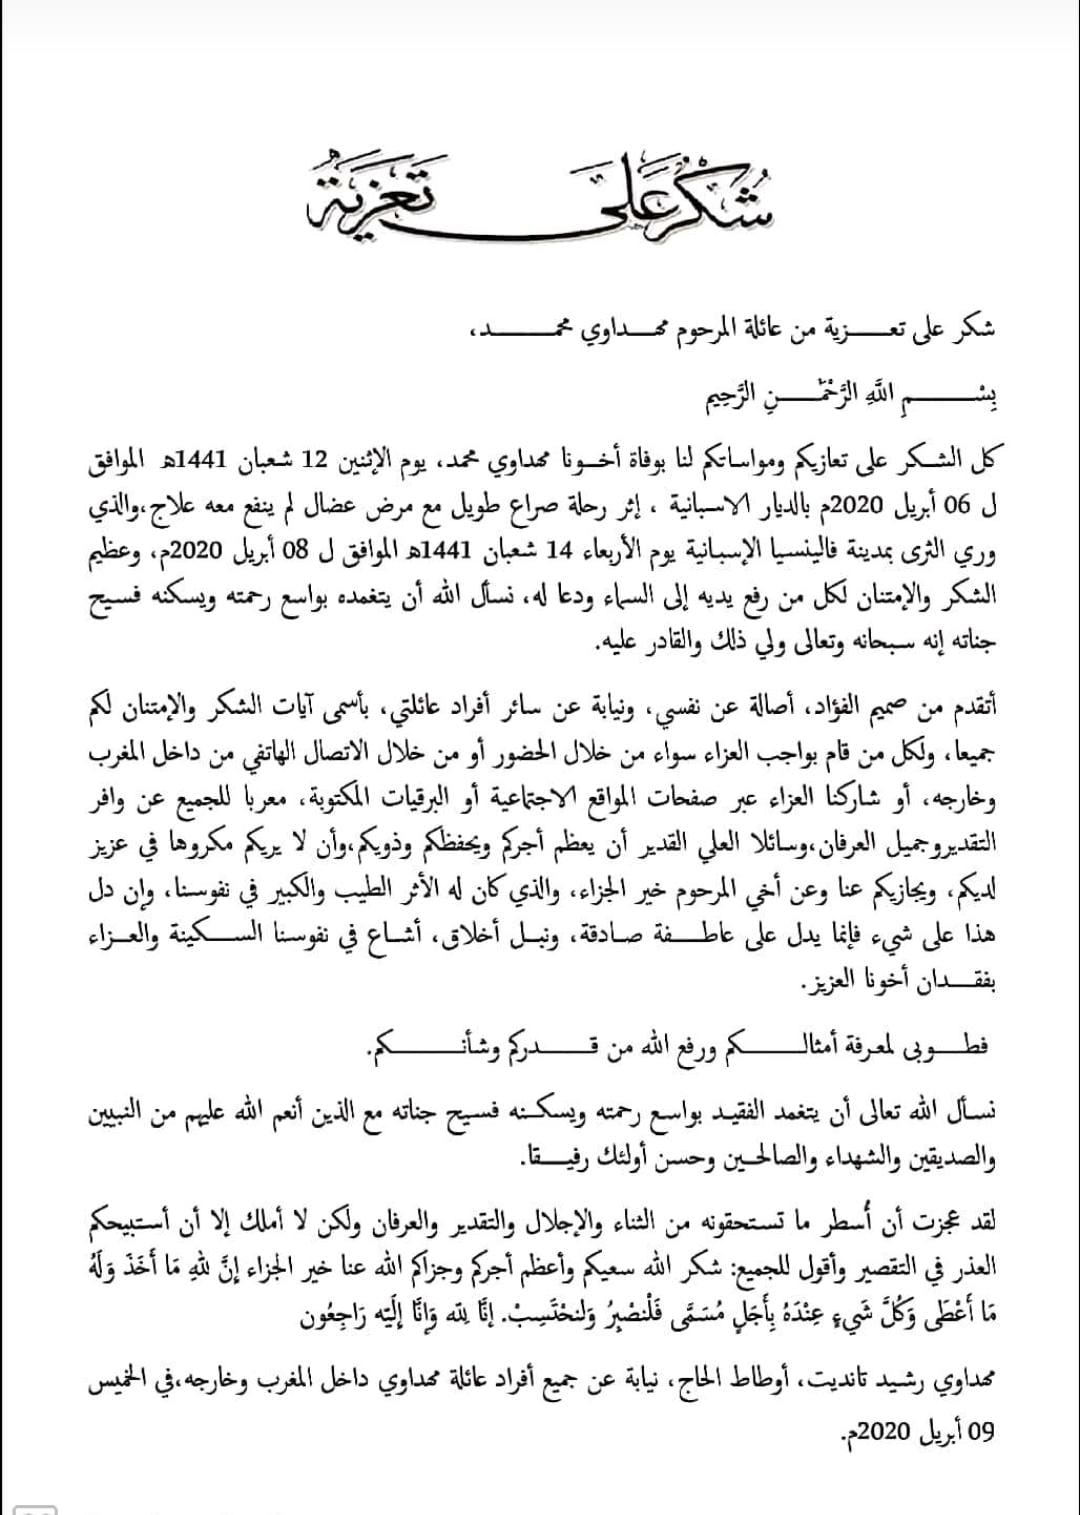 شُكْرٌ عَلَى تَعْزِيَةٌ
شكر على تعـــزية من عائلة المرحوم مهـداوي محمـــــد،
بِسْــــــمِ اللَّهِ الرَّحْمَـــنِ الرَّحِيمِ
كل الشـكر على تعازيكم ومواساتكم لنا بوفاة أخـونا مهداوي محمد، يوم الإثنين 12 شعبان 1441هـ الموافق
ل 06 أبريل 2020م بالديار الاسبانية ، إثر رحلة صراع طويل مع مرض عضال لم ينفع معه علاج،والذي
وري الثرى بمدينة فالينسيا الإسبانية يوم الأربعاء 14 شعبان 1441هـ الموافق ل 08 أبريل 2020م، وعظيم
الشكر والإمتنان لكل من رفع يديه إلى السماء ودعا له، نسأل الله أن يتغمده بواسع رحمته ويسكنه فسيح
جناته إنه سبحانه وتعالى ولي ذلك والقادر عليه.
أتقدم من صميم الفؤاد، أصالة عن نفسي، ونيابة عن سائر أفراد عائلتي، بأسمى آيات الشكر والإمتنان لكم
جميعا، ولكل من قام بواجب العزاء سواء من خلال الحضور أو من خلال الاتصال الهاتفي من داخل المغرب
وخارجه، أو شاركنا العزاء عبر صفحات المواقع الاجتماعية أو البرقيات المكتوبة، معربا للجميع عن وافر
التقديروجميل العرفان،وسائلا العلي القدير أن يعظم أجركم ويحفظكم وذويكم،وأن لا يريكم مكروها في عزيز
لديكم، ويجازيكم عنا وعن أخي المرحوم خير الجزاء، والذي كان له الأثر الطيب والكبير في نفوسنا، وإن دل
هذا على شيء فإنما يدل على عاطـفة صادقة، ونبـل أخلاق، أشـاع في نفوسنا السـكينة والعـزاء
بفقـدان أخونا العزيز.
فطـوبى لمعرفة أمثالـــــكم ورفع الله من قـــدركم وشأنـــــكم.
نسـأل الله تعالى أن يتغمد الفقيـد بواسع رحمته ويسكـنه فسيح جناته مع الذين أنعم الله عليهم من النبيين
والصديقين والشهداء والصالحـين وحسن أولئك رفيــقا.
لقد عجزت أن أُسطر ما تستحقونه من الثناء والإجلال والتقدير والعرفان ولكن لا أملك إلا أن أستبيحكم
العذر في التقصير وأقول للجميع: شكر الله سعيكم وأعظم أجركم وجزاكم الله عنا خير الجزاء إنَّ لله مَا أَخَذَ وَلَهُ
مَا أَعْطَى وَكُلَّ شَيءٍ عِنْدَهُ بِأَجَلٍ مُسَمَّى فَلْنصْبِرُ وَلنحْتَسِبْ. إنَّا لِلّه وَانَّا إِلَيْه رَاجِعُون
مهداوي رشيد تانديت، أوطاط الحاج، نيابة عن جميع أفراد عائلة مهداوي داخل المغرب وخارجه،في الخميس
09 أبريل 2020م.